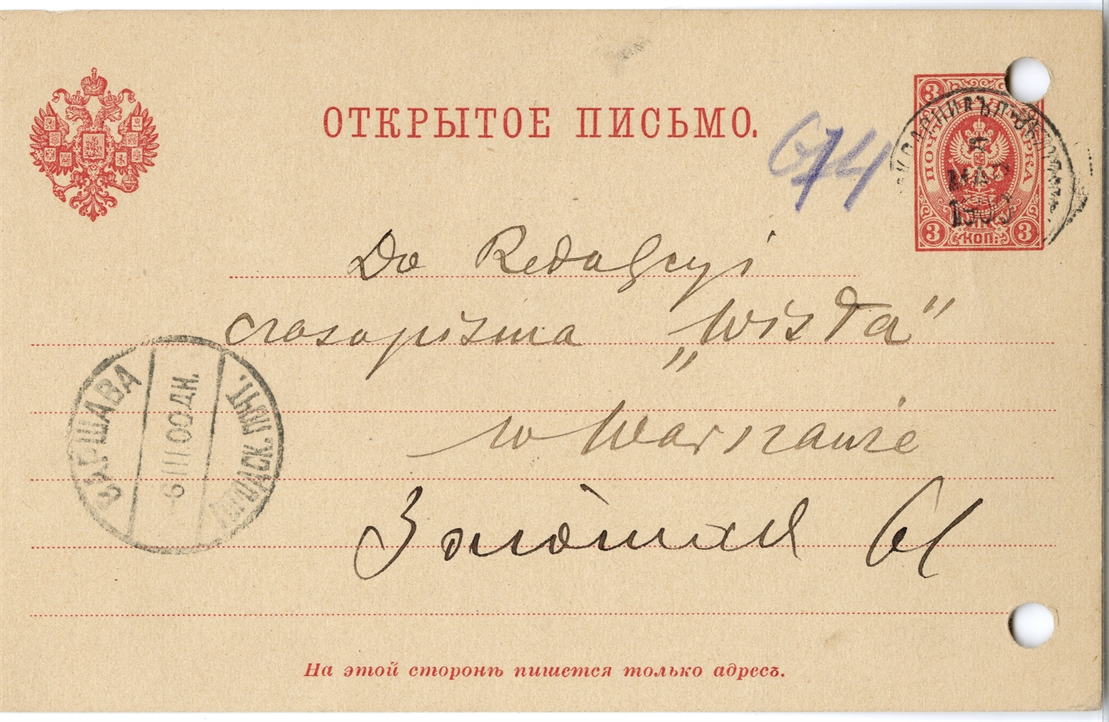 ОТКРЫТОЕ ПИСЬМО.
674
3 3
ПОЧТОВАЯ МАРКА
МАР
3 КОП. 3
Do Redakcyi
czasopisma „Wisła"
w Warszawie
Золотая 61
ВАРШАВА
6 III 00 ДН.
ГОРОДСК. ПОЧТ.
На этой сторонѣ пишется только адресъ.